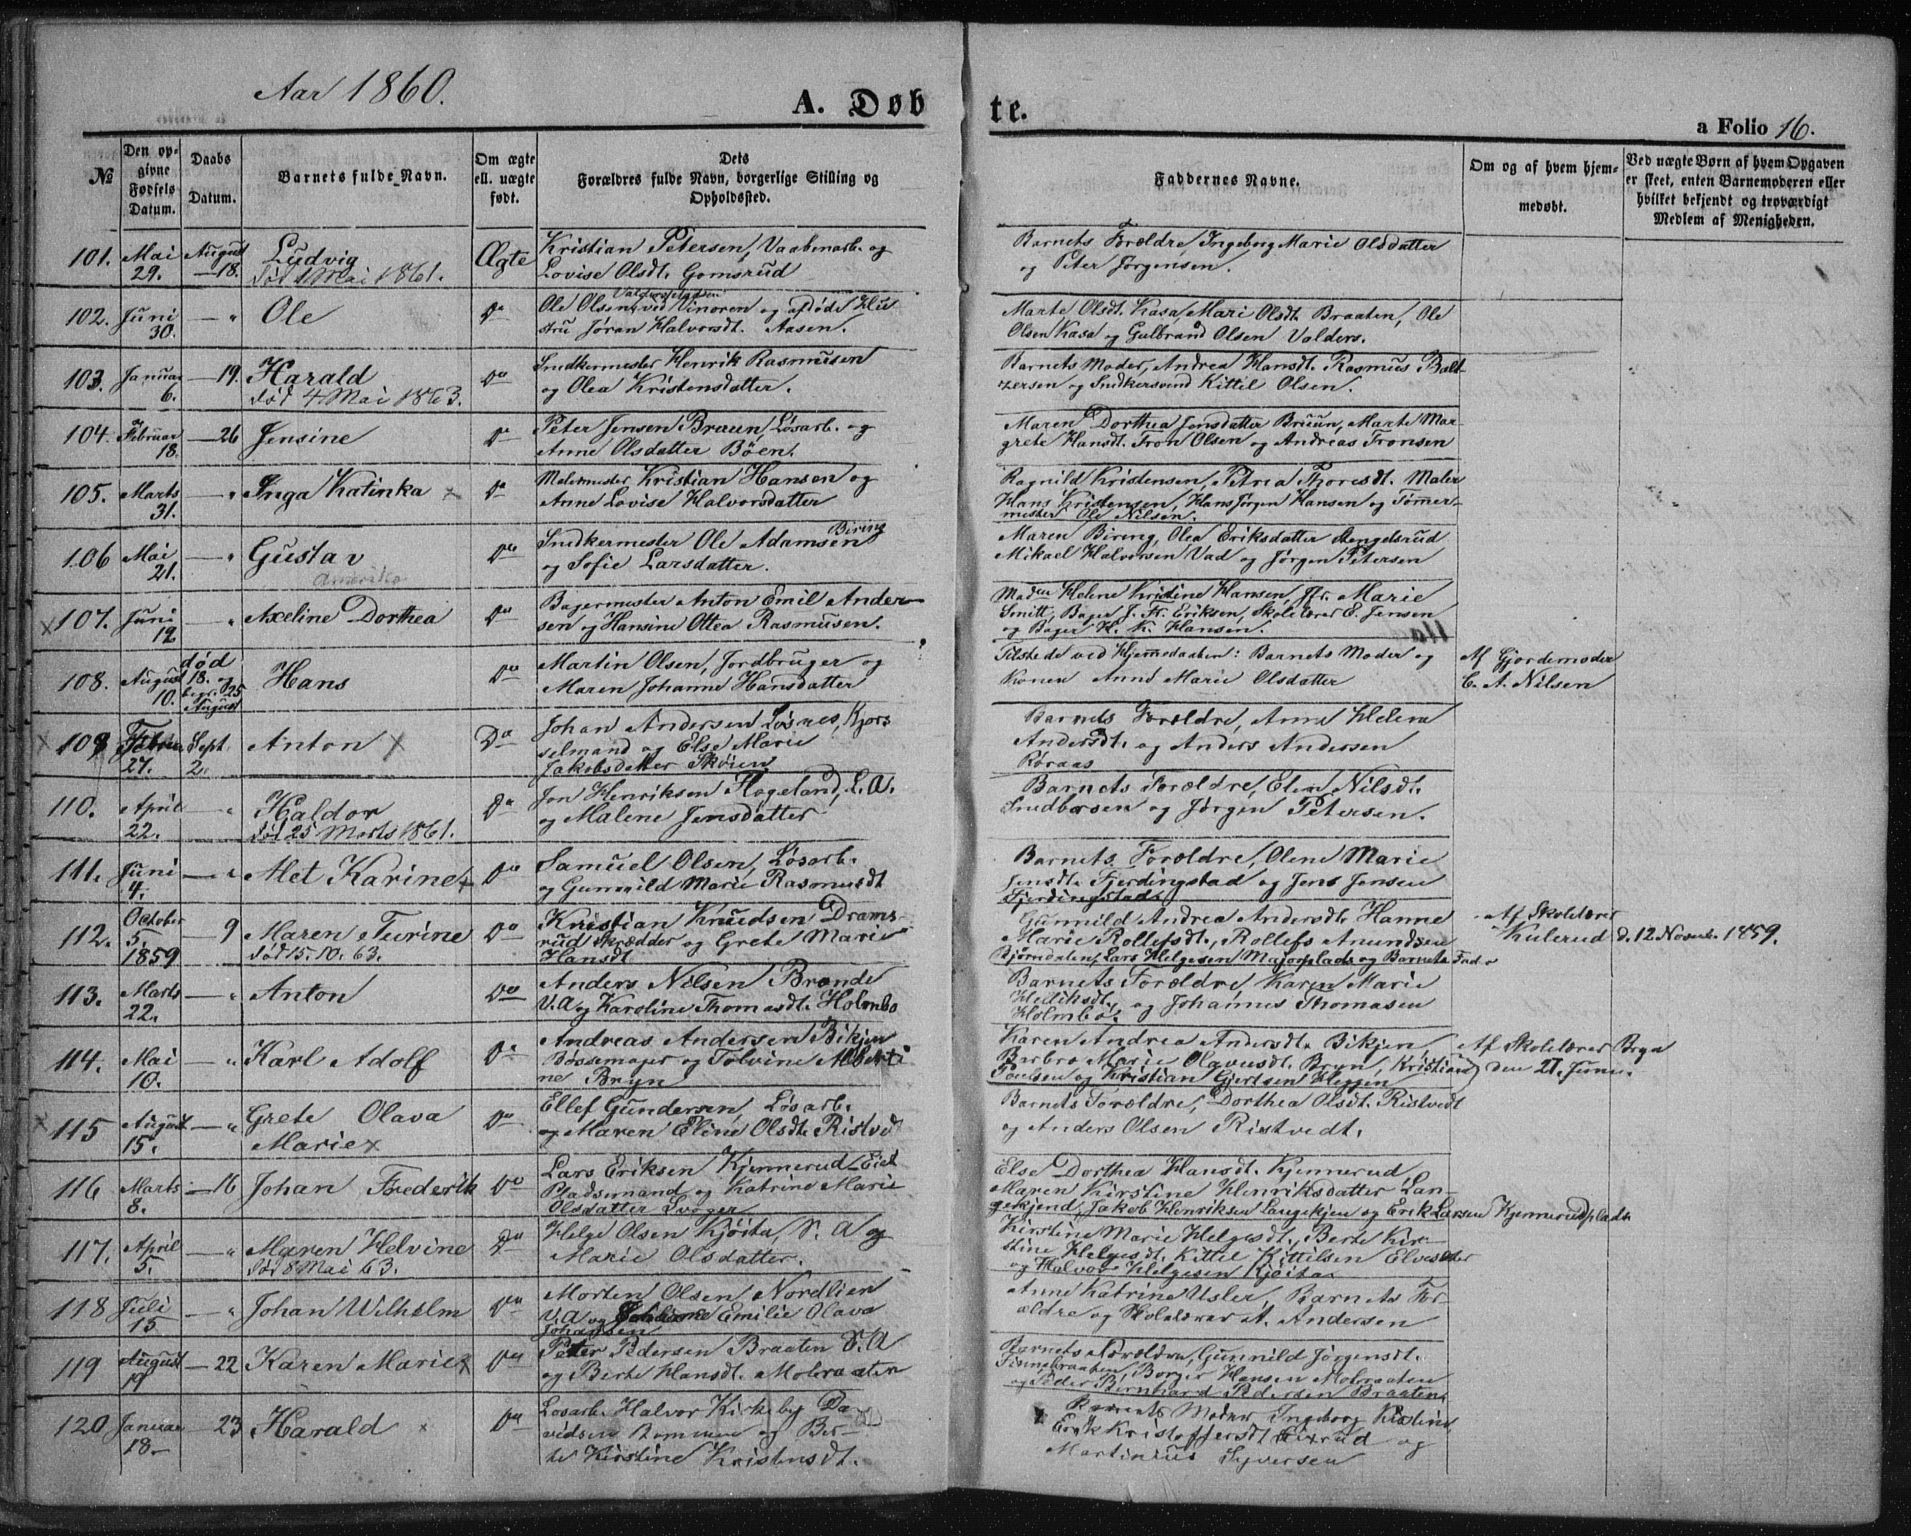 Aar 1860.
A. Døb
te.
a Folio 16.
№
Den op-
givne
Fødsels
Datum.
Daabs
Datum.
Barnets fulde Navn.
Om ægte
ell. uægte
født.
Dets
Forældres fulde Navn, borgerlige Stilling og
Opholdssted.
Faddernes Navne.
Om og af hvem hjem-
medøbt.
Ved uægte Børn af hvem Opgaven
er skeet, enten Barnemoderen eller
hvilket bekjendt og troværdigt
Medlem af Menigheden.
101. Mai 29. August 18. Ludvig Ægte Kristian Petersen, Vaabenarb. og
død 1 Mai 1861. Lovise Olsdt. Gomsrud
Barnets Forældre, Ingeborg Marie Olsdatter
og Peter Jørgensen.
102. Juni 30. — " Ole Do Ole Olsen ved Vinoren og afdøde Hu
stru Jøran Halvorsdt. Aasen.
Marte Olsdt. Kasa, Mari Olsdt. Braaten, Ole
Olsen Kasa og Gulbrand Olsen Valders.
103. Januar 6. — 19. Harald Do Snedkermester Henrik Rasmusen
død 4 Mai 1863. og Olea Kristensdatter.
Barnets Moder, Andrea Hansdt. Rasmus Balt
zersen og Snedkersvend Kittil Olsen.
104. Februar 18. — 26 Jensine Do Peter Jensen Bruun, Løsarb. og
Anne Olsdatter Böen.
Maren Dorthea Jensdatter Bruun, Marte Mar-
grete Hansdt. Tron Olsen og Andreas Tronsen
105. Marts 31. — " Inga Katinka x Do Malermester Kristian Hansen og
Anne Lovise Halvorsdatter
Ragnild Kristensen, Petrea Thoresdt. Maler
Hans Kristensen, Hans Jørgen Hansen og Tømer-
mester Ole Nilsen.
106 Mai 21. — " Gustav Do Snedkermester Ole Adamsen Biring
og Sofie Larsdatter.
Maren Biring, Olea Eriksdatter Stengelsrud
Mikael Halvorsen Vad og Jørgen Petersen
x 107. Juni 12. — " Axeline Dorthea Do Bagermester Anton Emil Ander-
sen og Hansine Ottea Rasmusen.
Maden Helene Kristine Hansen, Fr. Marie
Smitt, Bager J. Fr. Eriksen, Skolelærer E. Jensen
og Bager H. K. Hansen.
108. August 10. død 18. og begr. 25 August Hans Do Martin Olsen, Jordbruger og
Maren Johanne Hansdatter
Tilstede ved Hjemmedaaben: Barnets Moder og
Konen Anne Marie Olsdatter
Af Gjordemoder
C. A. Nilsen
x 109 Febru 27. Sept. 2. Anton x Do Johan Andersen Løsnes, Kjørs
selmand og Else Marie
Jakobsdatter Skoien
Barnets Forældre, Anne Helene
Andersdt. og Anders Andersen
Røraas
110. April 22. — " Haldor Do Jon Henriksen Hogeland, L. A.
død 25 Marts 1861. og Malene Jensdatter
Barnets Forældre, Elen Nilsdt.
og Jørgen Petersen.
111. Juni 4. — " Alet Karine x Do Samuel Olsen, Løsarb.
og Gunnild Marie Rasmusdt
Barnets Forældre, Olene Marie
Jensdt. Fjerdingstad og Jens Jensen
Fjerdingstad
112. October 5. 1859 — 9 Maren Turine Do Kristian Knudsen Drams-
død 15. 10. 63. rud Skrædder og Grete Marie
Hansdt
Gunnild Andrea Andersdt. Hanne
Marie Rollefsdt., Rollefs Amundsen
Bjørndalen, Lars Helgesen Majorplads og Barnets Fader
Af Skolelærer
Kulerud d. 12 Novemb. 1859.
113. Marts 22. — " Anton Do Anders Nilsen Brænde
V. A og Karoline Thomasdt. Holmbo
Barnets Forældre, Karen Marie
og Johannes Thomasen
Holmbo.
114. Mai 10. — " Karl Adolf Do Andreas Andersen Bikjen
Bøssemager og Tolvine Alberti
ne Bryn
Karen Andrea Andersdt. Bikjen
Barbro Marie Olavusdt. Bryn, Kristian
Poulsen og Kristian Gjertsen Heggen
Af Skolelærer Bryn
den 21. Juni.
x 115 August 15. — " Grete Olava Do Ellef Gundersen, Løsarb.
Marie x og Maren Eline Olsdt. Ristvedt
Barnets Forældre, Dorthea Olsdt. Ristvedt
og Anders Olsen Ristvedt.
116 Marts 8. — 16 Johan Frederik Do Lars Eriksen Kjennerud Eiet
Pladsemand og Katrine Marie
Olsdatter Svøger
Else Dorthea Hansdt. Kjennerud
Maren Kirstine Henriksdatter Lan-
gekjend, Jakob Henriksen Langekjen og Erik Larsen Kjennerudplads
117. April 5. — " Maren Helvine Do Helge Olsen Kjøita, S. A og
død 8 Mai 63. Marie Olsdatter.
Kirstine Marie Helgesdt., Berte Kir-
stine Helgesdt. Kittil Kittilsen Elvesæter
og Halvor Helgesen Kjøita
118 Juli 15 — " Johan Wilhelm Do Morten Olsen Nordlien
V. A og Emilie Olava
Johansen
Anne Katrine Usler, Barnets For-
ældre og Skolelærer A. Andersen
119 August 19 — 22 Karen Marie x Do Peter Pedersen Braaten S. A
og Berte Hansdt. Mobraaten
Barnets Forældre, Gunnild Jørgensdt.
Finnebraaten, Borger Hansen Mobraaten
og Peder Bernhard Pedersen Braaten
120 Januar 18. — 23 Harald x Do Løsarb. Halvor Kirkeby Da
vidsen Bommen og Ber-
te Kirstine Kristensdt.
Barnets Moder Ingeborg Kristine
Erik Kristoffersdt og
Martinius Syversen